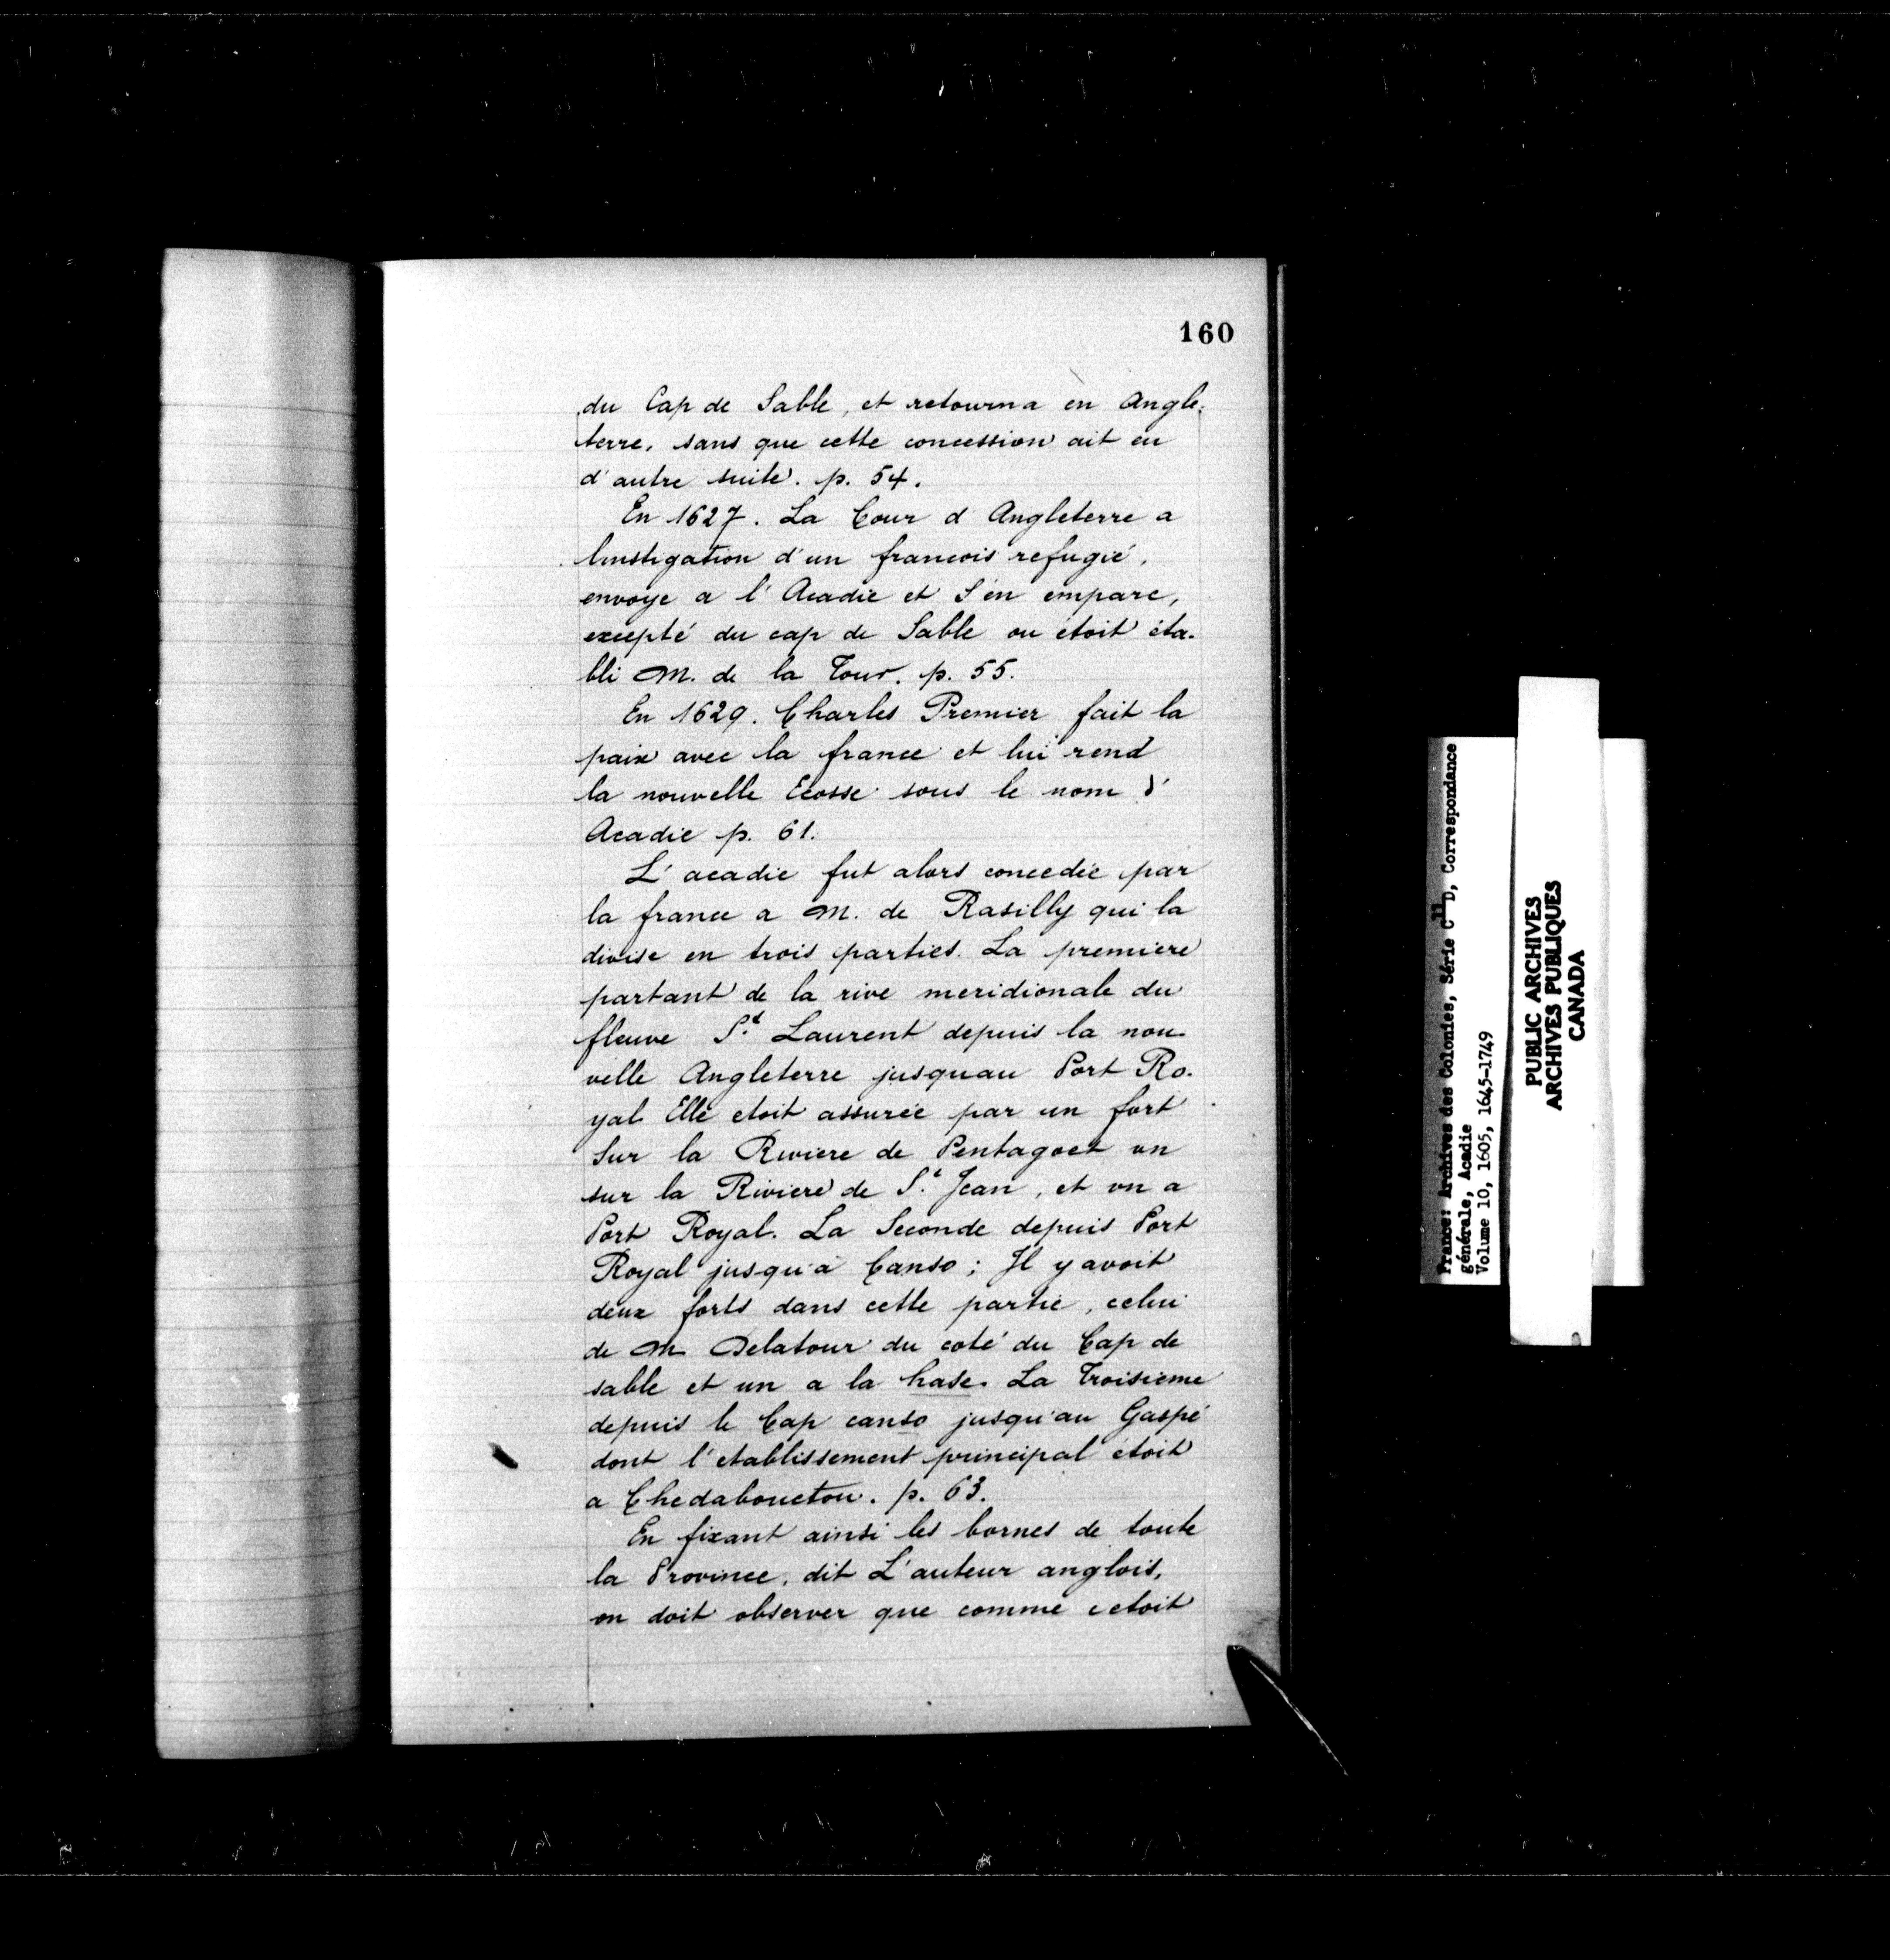 160
du Cap de Sable, et retourna en Angle-
terre, sans que cette concession ait eu
d'autre suite. p. 54.
En 1627. La Cour d Angleterre a
linstigation d'un francois refugié,
envoye a l'Acadie et S'en empare,
excepté du cap de Sable ou étoit éta-
bli M. de la Tour. p. 55.
En 1629. Charles Premier fait la
paix avec la france et lui rend
la nouvelle Ecosse sous le nom d'
Acadie p. 61.
L'acadie fut alors concedée par
la france a M. de Rasilly qui la
divise en trois parties. La premiere
partant de la rive meridionale du
fleuve St Laurent depuis la nou-
velle Angleterre jusquau Port Ro-
yal. Elle etoit assurée par un fort
Sur la Riviere de Pentagoet un
sur la Riviere de St Jean, et un a
Port Royal. La Seconde depuis Port
Royal jusqu'a Canso; Il y avoit
deux forts dans cette partie, celui
de M Delatour du coté du Cap de
sable et un a la hase. La Troisieme
depuis le Cap canso jusqu'au Gaspé
dont l'etablissement principal étoit
a Chedabouctou. p. 63.
En fixant ainsi les bornes de toute
la Province, dit L'auteur anglois,
on doit observer que comme cetoit
France: Archives des Colonies, Série C11 D, Correspondance
générale, Acadie
Volume 10, 1605, 1645-1749
PUBLIC ARCHIVES
ARCHIVES PUBLIQUES
CANADA